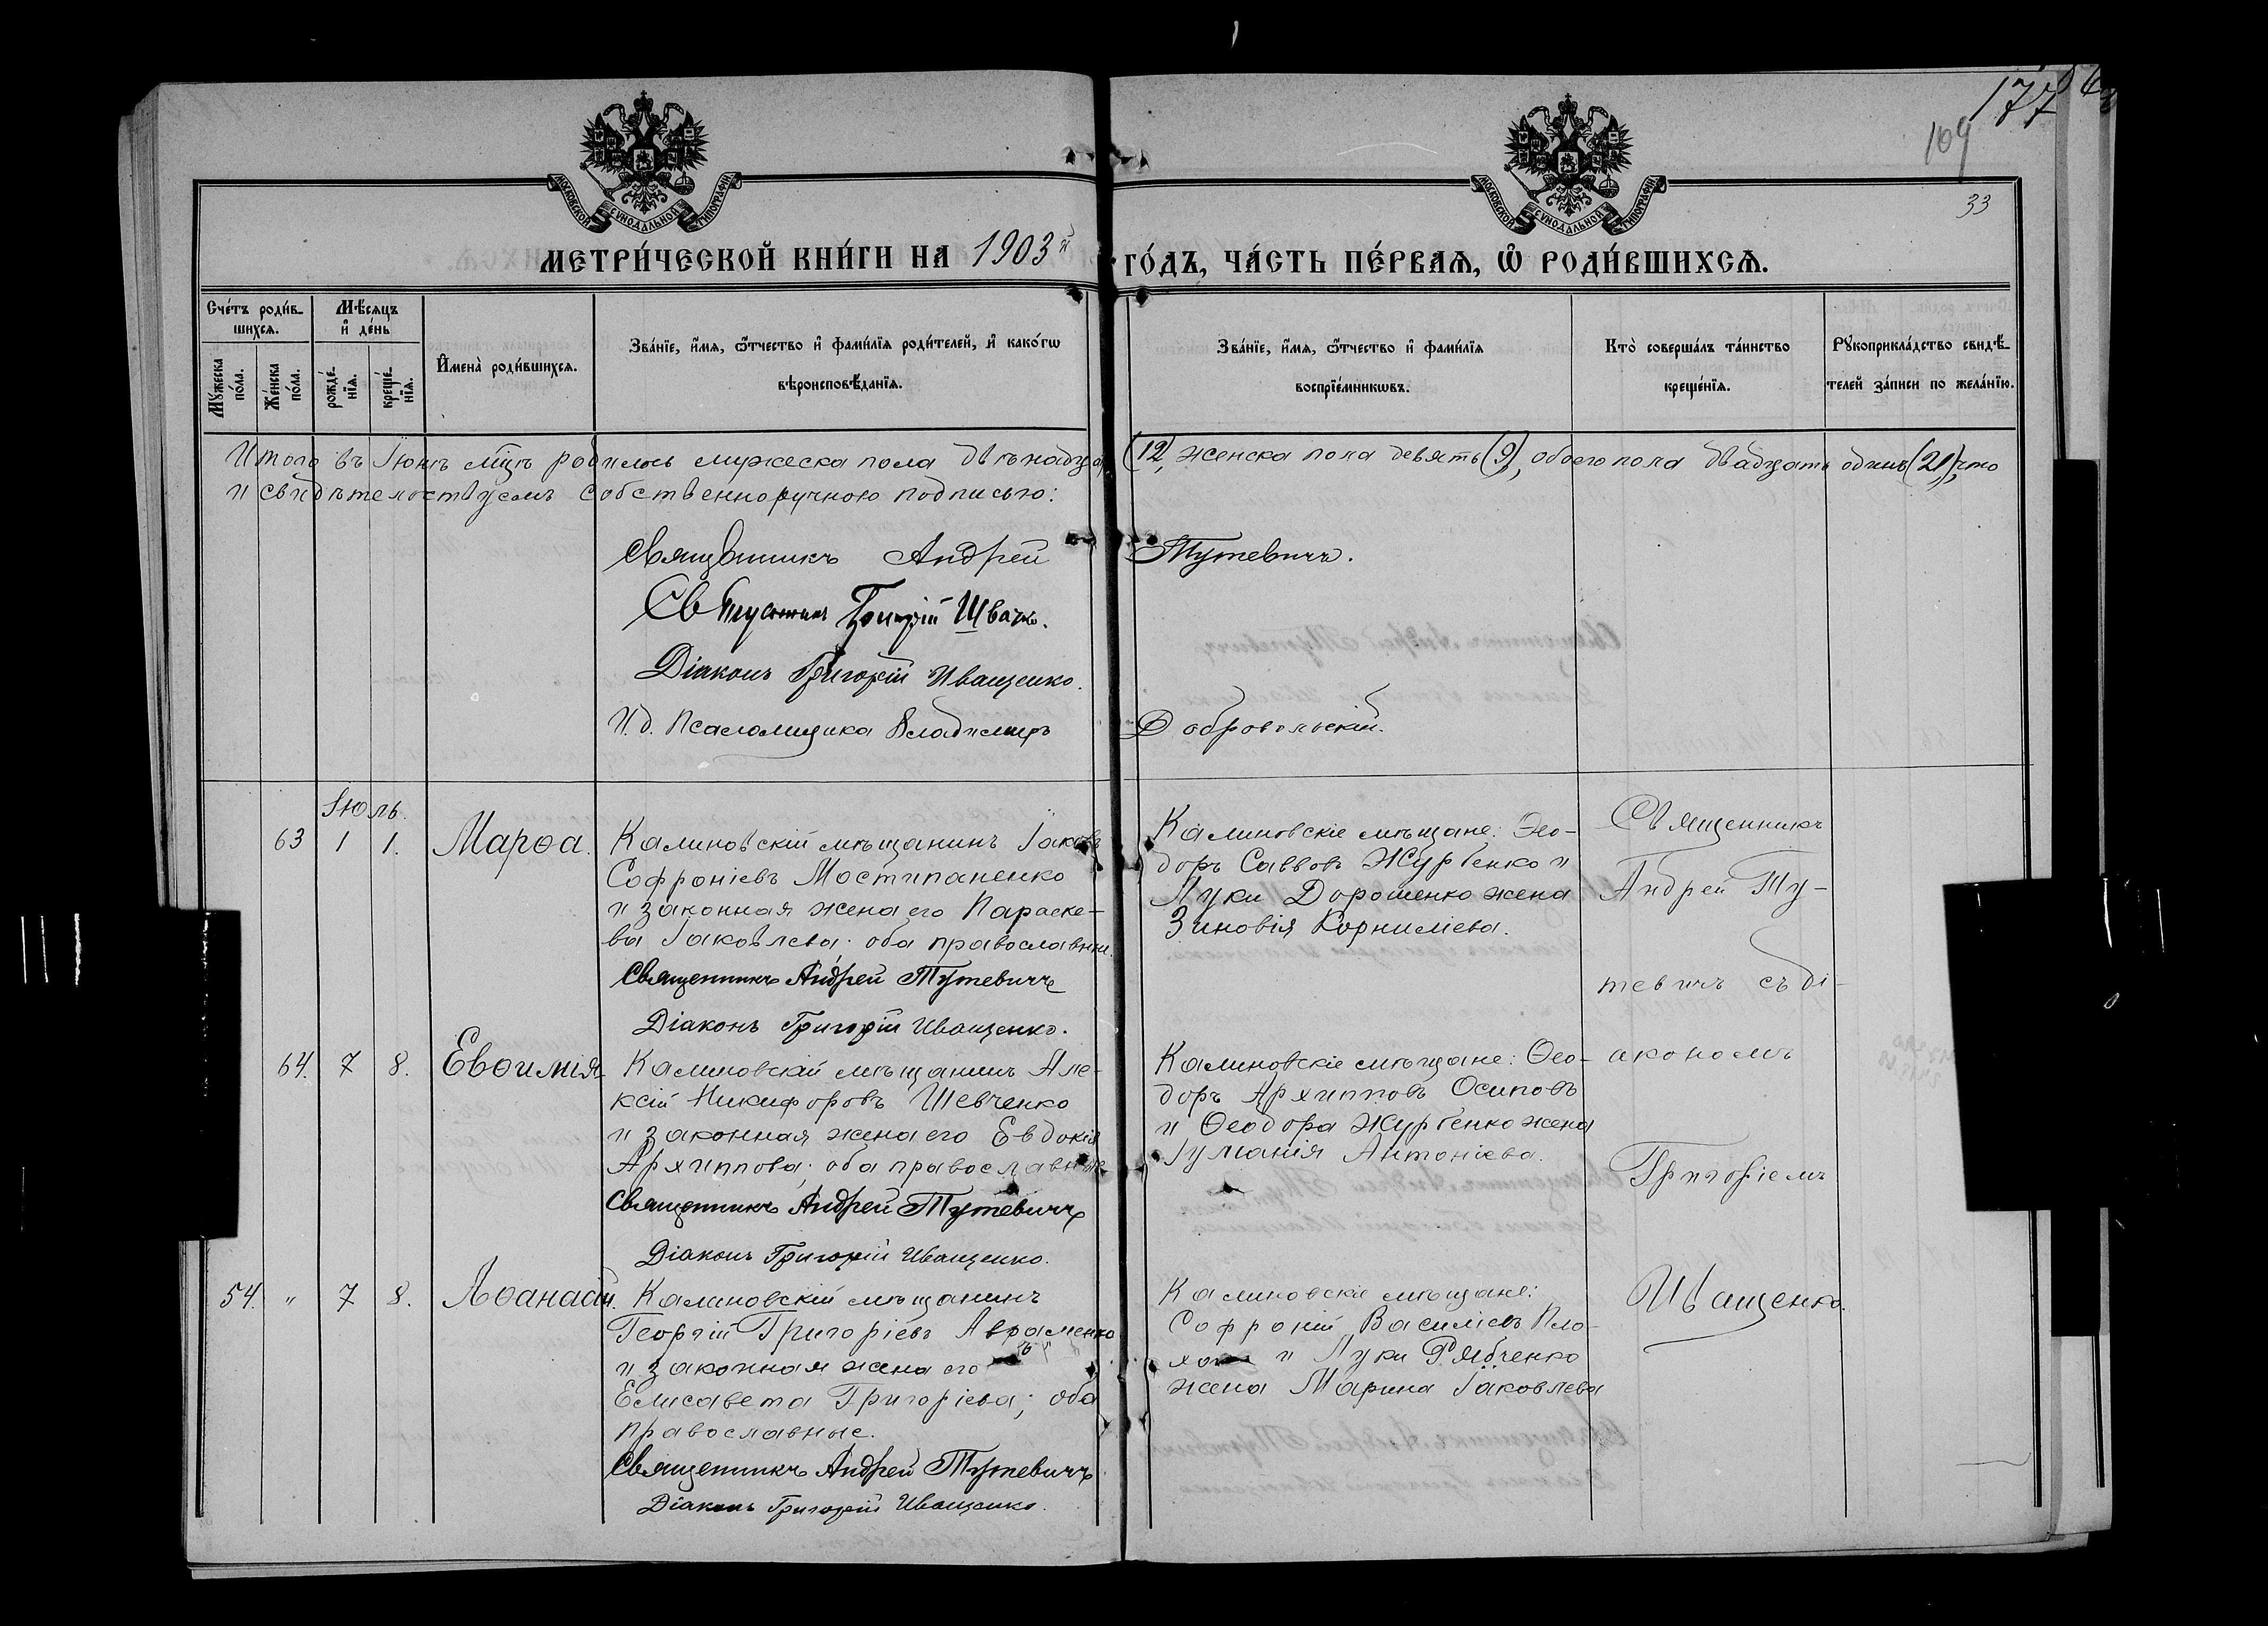 177
169
33
МОСКОВСКОЙ СѴНОДАЛЬНОЙ ТИПОГРАФІИ
МОСКОВСКОЙ СѴНОДАЛЬНОЙ ТИПОГРАФІИ
МЕТРИ́ЧЕСКОЙ КНИ́ГИ НА 1903й ГО́ДЪ, ЧА́СТЬ ПЕ́РВАЯ, Ѡ РОДИ́ВШИХСЯ.
Сче́тъ роди́в-
шихся.
Мѣ́сяцъ
и҆ де́нь
Мꙋ́жеска по́ла.
Же́нска по́ла.
рожде́-
нїя.
креще́-
нїя.
И҆мена̀ роди́вшихся.
Зва́нїе, и҆́мя, ѻ҆́тчество и҆ фами́лїя роди́телей, и҆ како́гѡ
вѣроисповѣ́данїя.
Зва́нїе, и҆́мя, ѻ҆́тчество и҆ фами́лїя
воспрїе́мникѡвъ.
Кто̀ соверша́лъ та́инство
креще́нїя.
Рꙋкоприкла́дство свидѣ́-
телей за́писи по жела́нїю.
Итого въ Іюнѣ мѣцѣ родилось мужеска пола двѣнадца (12), женска пола девять (9), обоего пола двадцать одинъ (21), что
и свидѣтельствуемъ собственноручною подписью:
Священникъ Андрей Тутевичъ.
Діаконъ Григорій Иващенко.
И. д. Псаломщика Владимиръ Добровольскій.
Іюль.
63 1 1. Марѳа.
Калиновскій мѣщанинъ Іаковъ
Софроніевъ Мостипаненко
и законная жена его Параске-
ва Іаковлева; оба православные.
Священникъ Андрей Тутевичъ
Діаконъ Григорій Иващенко.
Калиновскіе мѣщане: Ѳео-
доръ Саввовъ Журбенко и
Луки Дорошенко жена
Зиновія Корниліева.
Священникъ
Андрей Ту-
тевичъ съ ді-
акономъ
Григоріемъ
Иващенко.
64. 7 8. Евѳимія
Калиновскій мѣщанинъ Але-
ксій Никифоровъ Шевченко
и законная жена его Евдокія
Архиппова; оба православные
Священникъ Андрей Тутевичъ
Діаконъ Григорій Иващенко.
Калиновскіе мѣщане: Ѳео-
доръ Архипповъ Осиповъ
и Ѳеодора Журбенко жена
Іуліанія Антоніева.
54. " 7 8. Аѳанасій.
Калиновскій мѣщанинъ
Георгій Григоріевъ Авраменко
и законная жена его
Елисавета Григоріева; оба
православные.
Священникъ Андрей Тутевичъ
Діаконъ Григорій Иващенко.
Калиновскіе мѣщане:
Софроній Василіевъ Пло-
и Луки Рябченко
жена Марина Іаковлева